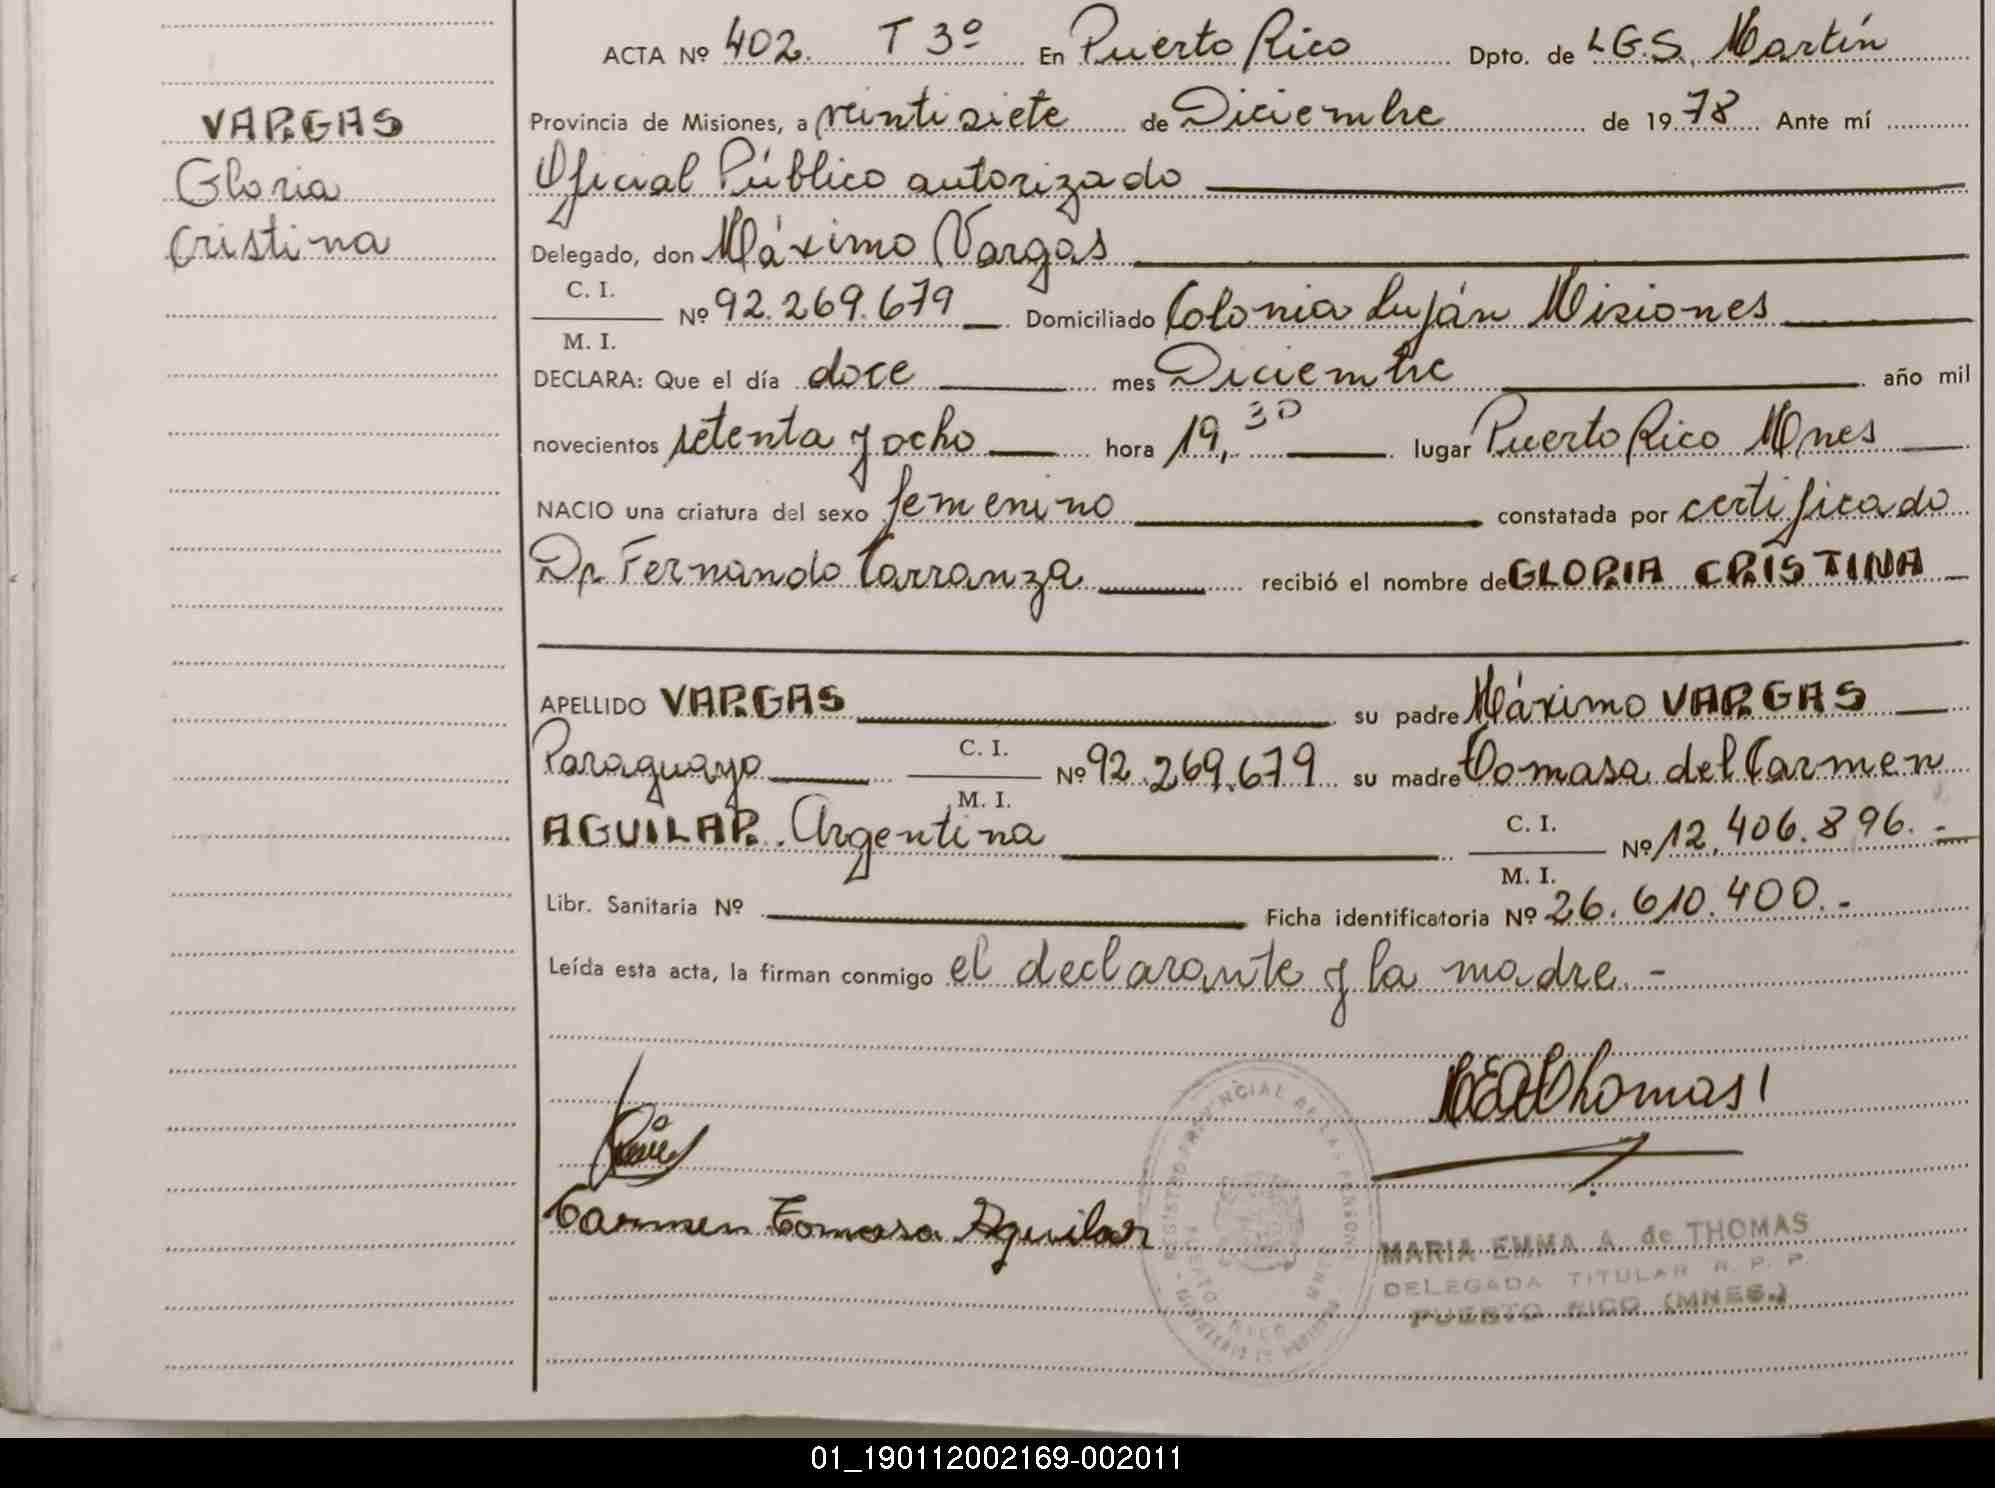 VARGAS
Gloria
Cristina
ACTA Nº 402. T 3º En Puerto Rico Dpto. de L.G.S. Martín
Provincia de Misiones, a veintisiete de Diciembre de 1978 Ante mí
Oficial Público autorizado
Delegado, don Máximo Vargas
C. I.
Nº 92.269.679 Domiciliado Colonia Luján Misiones
M. I.
DECLARA: Que el día doce mes Diciembre año mil
novecientos setenta y ocho hora 19,30 lugar Puerto Rico Mnes
NACIO una criatura del sexo femenino constatada por certificado
Dr. Fernando Carranza recibió el nombre de GLORIA CRISTINA
APELLIDO VARGAS su padre Máximo VARGAS
Paraguayo C. I. Nº 92.269.679 su madre Tomasa del Carmen
M. I.
AGUILAR. Argentina C. I. Nº 12.406.896.-
M. I.
Libr. Sanitaria Nº Ficha identificatoria Nº 26.610.400.-
Leída esta acta, la firman conmigo el declarante y la madre.-
MEAdeThomas
Carmen Tomasa Aguilar
REGISTRO PROVINCIAL DE LAS PERSONAS
PUERTO RICO
MARIA EMMA A. de THOMAS
DELEGADA TITULAR R. P. P.
PUERTO RICO (MNES.)
01_190112002169-002011